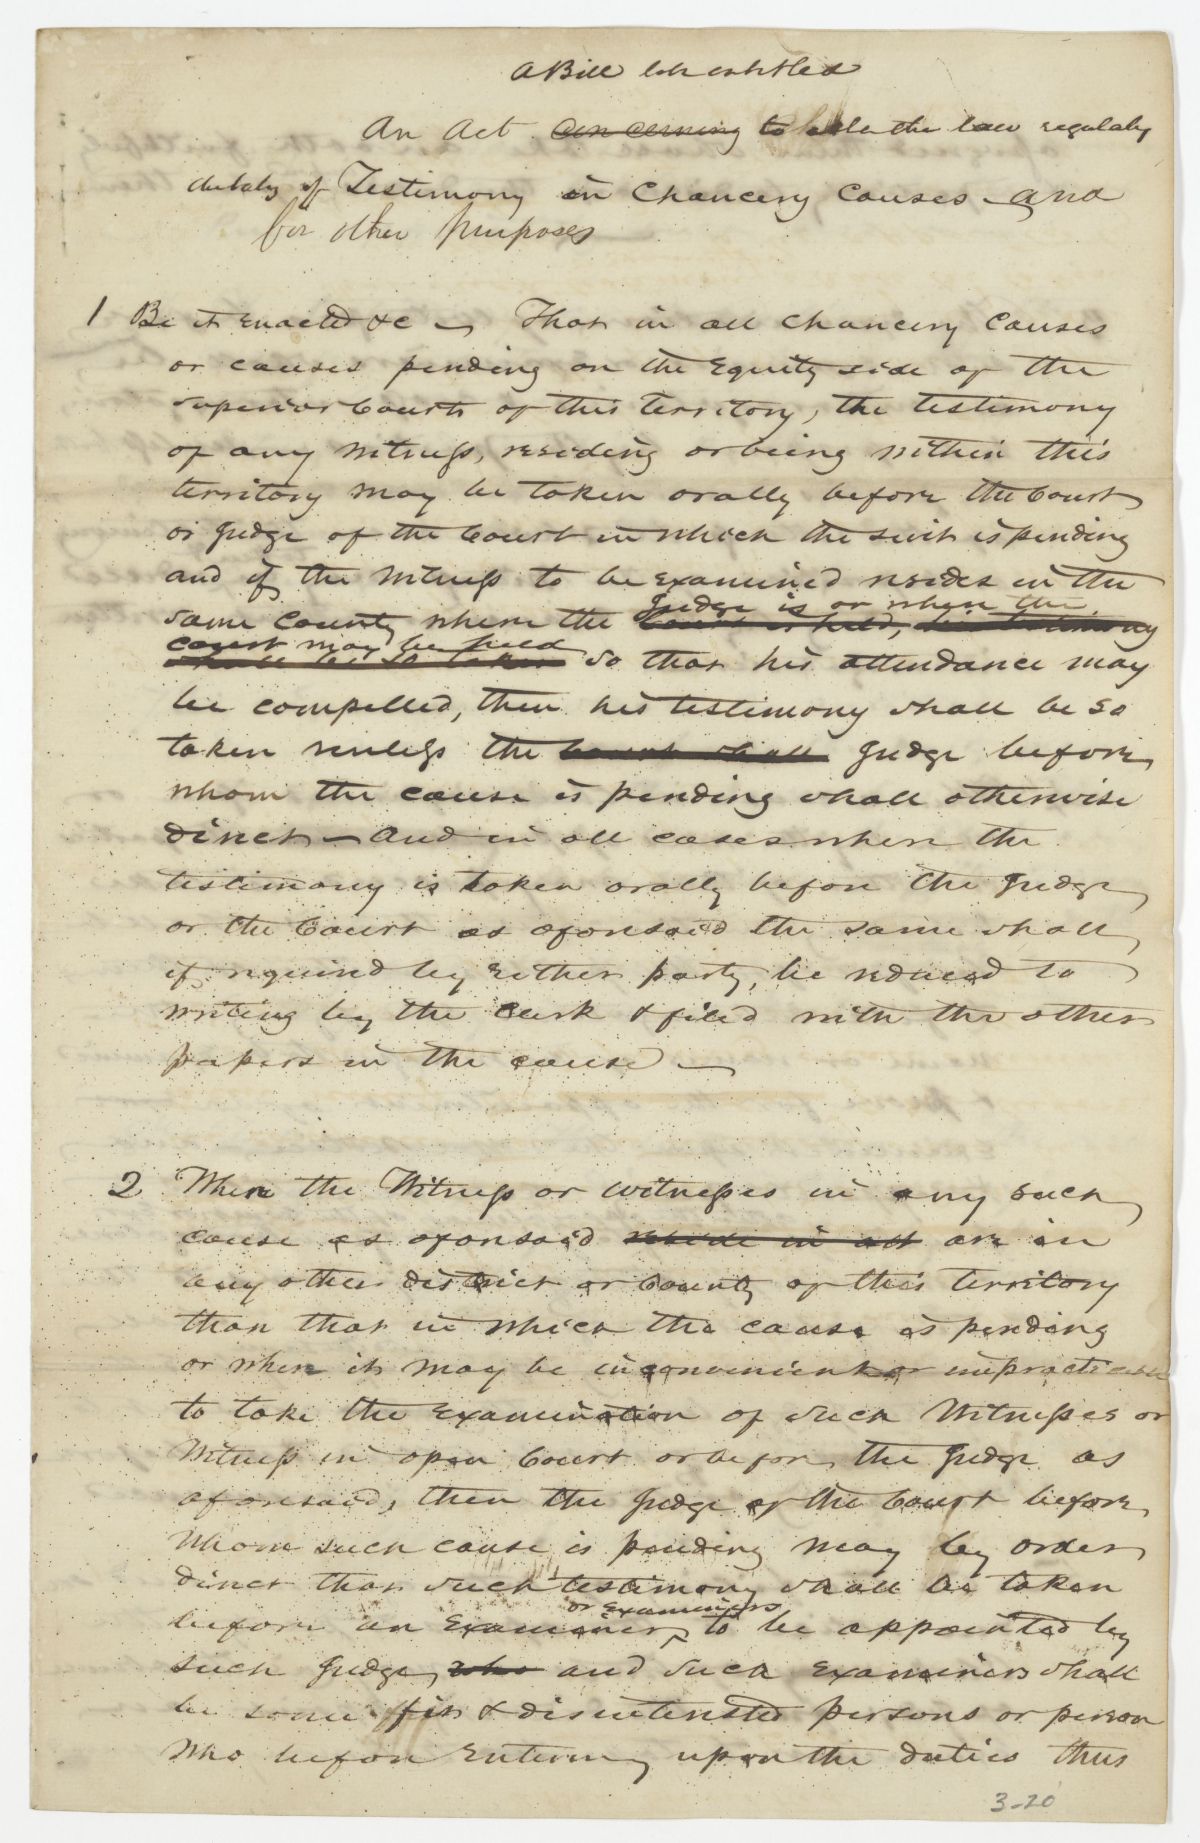 A Bill to be entitled
An Act concerning to the law regulating
the taking of Testimony in Chancery Causes and
for other purposes
1 Be it enacted &c That in all Chancery Causes
or causes pending on the Equity side of the
Superior Courts of this Territory, the testimony
of any witness, residing or being within this
territory may be taken orally before the Court
or Judge of the Court in which the suit is pending
and if the witness to be examined resides in the
Judge is or when the
same County where the Court is held, his testimony
court may be held
shall be so taken so that his attendance may
be compelled, then his testimony shall be so
taken unless the Court shall Judge before
whom the cause is pending shall otherwise
direct – and in all cases when the
testimony is taken orally before the Judge
or the Court as aforesaid the same shall
if required by either party, be reduced to
writing by the Clerk & filed with the other
papers in the cause –
2 When the Witness or witnesses in any such
cause as aforesaid reside in are in
any other district or County of this Territory
than that in which the cause is pending
or when it may be inconvenient or impracticable
to take the examination of such Witnesses or
Witness in open Court or before the Judge as
aforesaid, then the Judge of the Court before
whom such cause is pending may by order
direct that such testimony shall be taken
or Examiners
before an Examiner ^ to be appointed by
such Judge, who and such Examiners shall
be some fit & disinterested persons or person
who before entering upon the duties thus
3-20